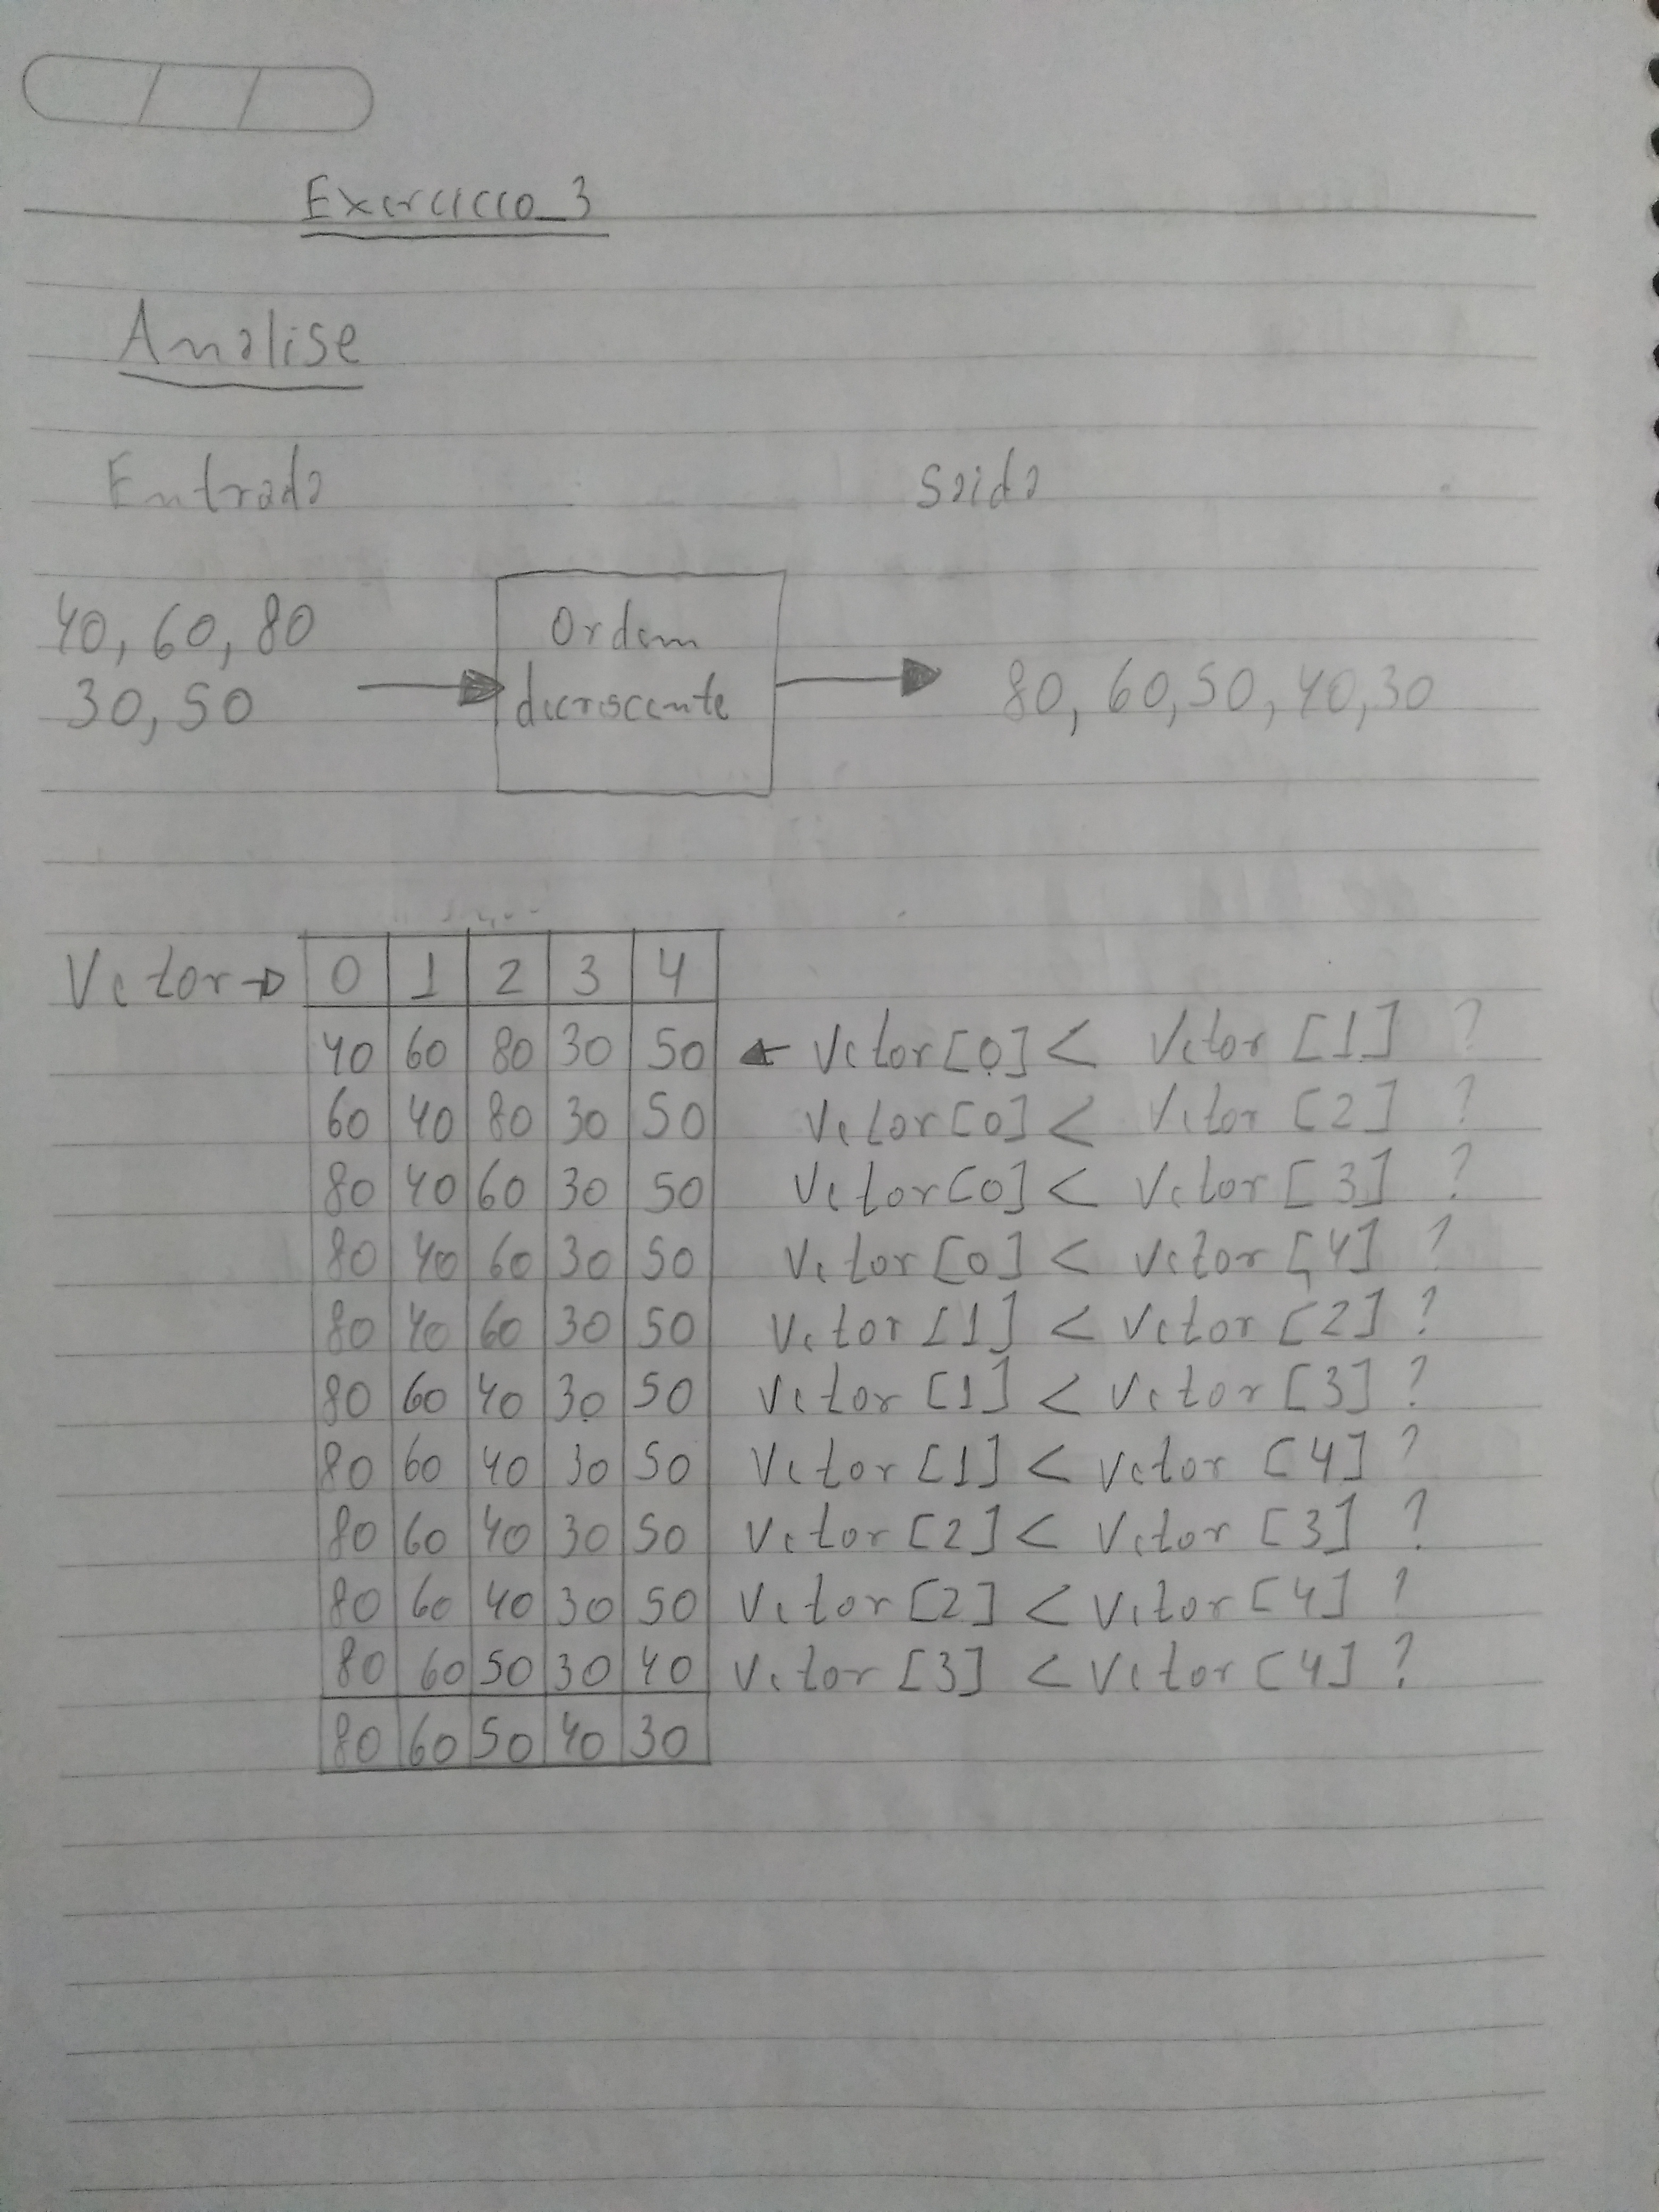 Exercicio_3
Analise
Entrada Saida
40, 60, 80
30, 50
Ordem
decrescente
80, 60, 50, 40, 30
Vetor → 0 1 2 3 4
40 60 80 30 50 ← Vetor[0] < Vetor [1] ?
60 40 80 30 50 Vetor[0] < Vetor [2] ?
80 40 60 30 50 Vetor[0] < Vetor [3] ?
80 40 60 30 50 Vetor[0] < Vetor [4] ?
80 40 60 30 50 Vetor [1] < Vetor [2] ?
80 60 40 30 50 Vetor [1] < Vetor [3] ?
80 60 40 30 50 Vetor [1] < Vetor [4] ?
80 60 40 30 50 Vetor [2] < Vetor [3] ?
80 60 40 30 50 Vetor [2] < Vetor [4] ?
80 60 50 30 40 Vetor [3] < Vetor [4] ?
80 60 50 40 30